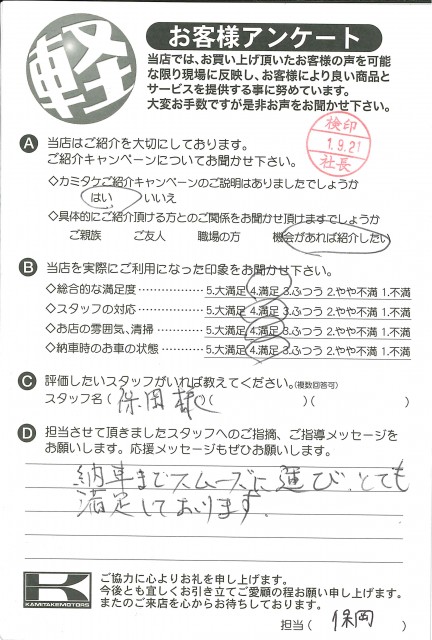 軽
お客様アンケート
当店では、お買い上げ頂いたお客様の声を可能
な限り現場に反映し、お客様により良い商品と
サービスを提供する事に努めています。
大変お手数ですが是非お声をお聞かせ下さい。
検印
1.9.21
社長
A 当店はご紹介を大切にしております。
ご紹介キャンペーンについてお聞かせ下さい。
◇カミタケご紹介キャンペーンのご説明はありましたでしょうか
はい いいえ
◇具体的にご紹介頂ける方とのご関係をお聞かせ頂けますでしょうか
ご親族 ご友人 職場の方 機会があれば紹介したい
B 当店を実際にご利用になった印象をお聞かせ下さい。
◇総合的な満足度………………5.大満足 4.満足 3.ふつう 2.やや不満 1.不満
◇スタッフの対応………………5.大満足 4.満足 3.ふつう 2.やや不満 1.不満
◇お店の雰囲気、清掃…………5.大満足 4.満足 3.ふつう 2.やや不満 1.不満
◇納車時のお車の状態…………5.大満足 4.満足 3.ふつう 2.やや不満 1.不満
C 評価したいスタッフがいれば教えてください。(複数回答可)
スタッフ名(保岡様)( )( )
D 担当させて頂きましたスタッフへのご指摘、ご指導メッセージを
お願いします。応援メッセージもぜひお願いします。
納車までスムーズに運び、とても
満足しております。
K
KAMITAKEMOTORS
ご協力に心よりお礼を申し上げます。
今後とも宜しくお引き立てご愛顧の程お願い申し上げます。
またのご来店を心からお待ちしております。
担当(保岡)